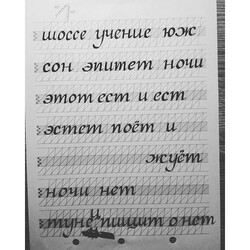 шоссе учение юж
сон эпитет ночи
этот ест и ест
эстет поёт и
жуёт
ночи нет
пишит о нет